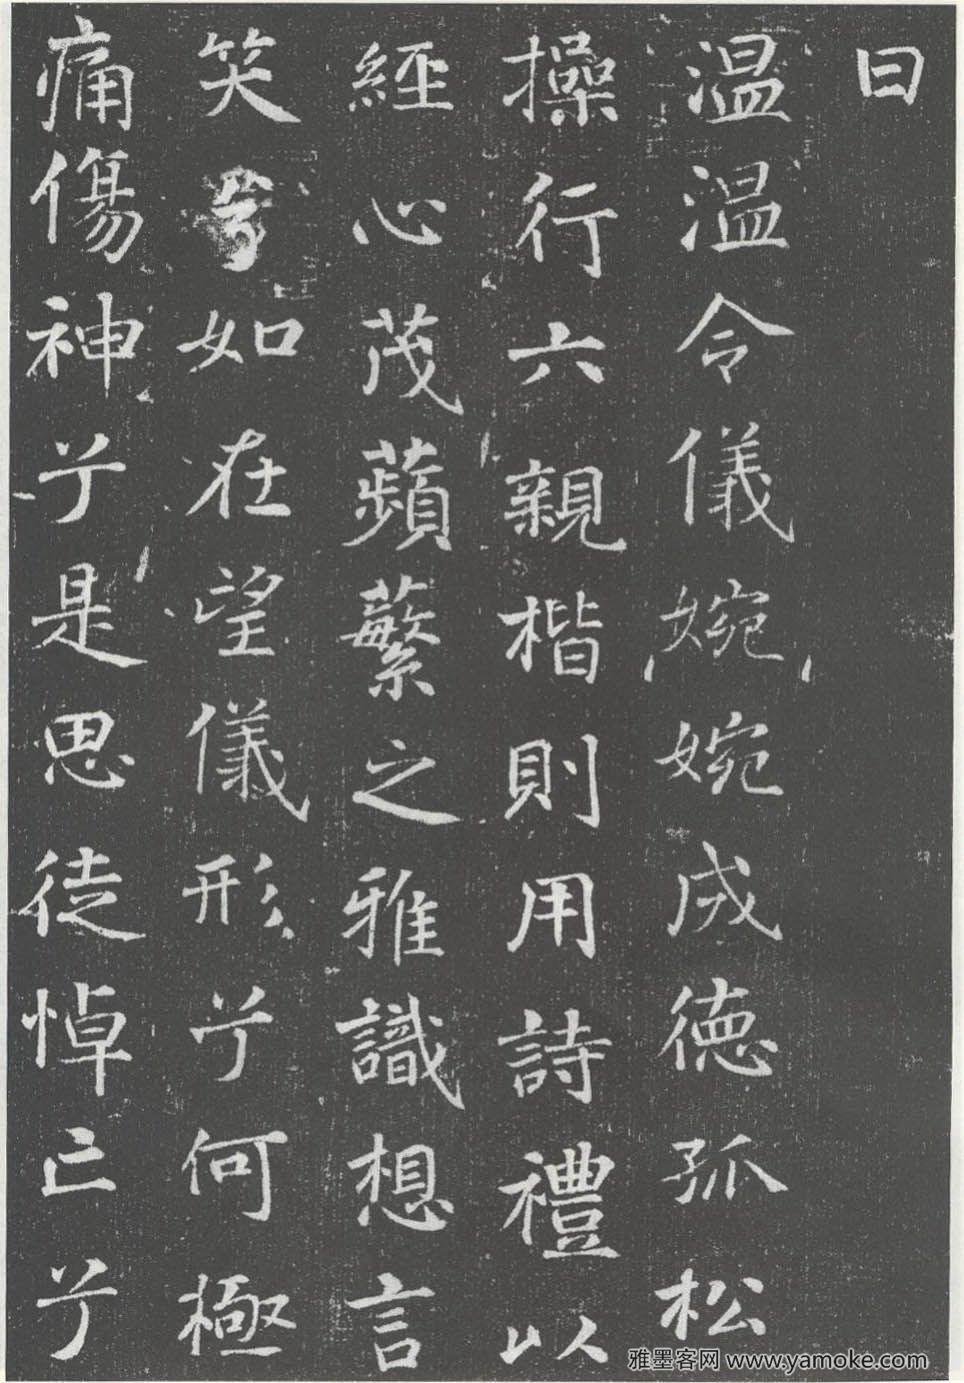 曰
温温令儀婉婉成德孤松
操行六親楷則用詩禮以
經心茂蘋蘩之雅識想言
笑兮如在望儀形兮何極
痛傷神兮是思徒悼亡兮
雅墨客网 www.yamoke.com